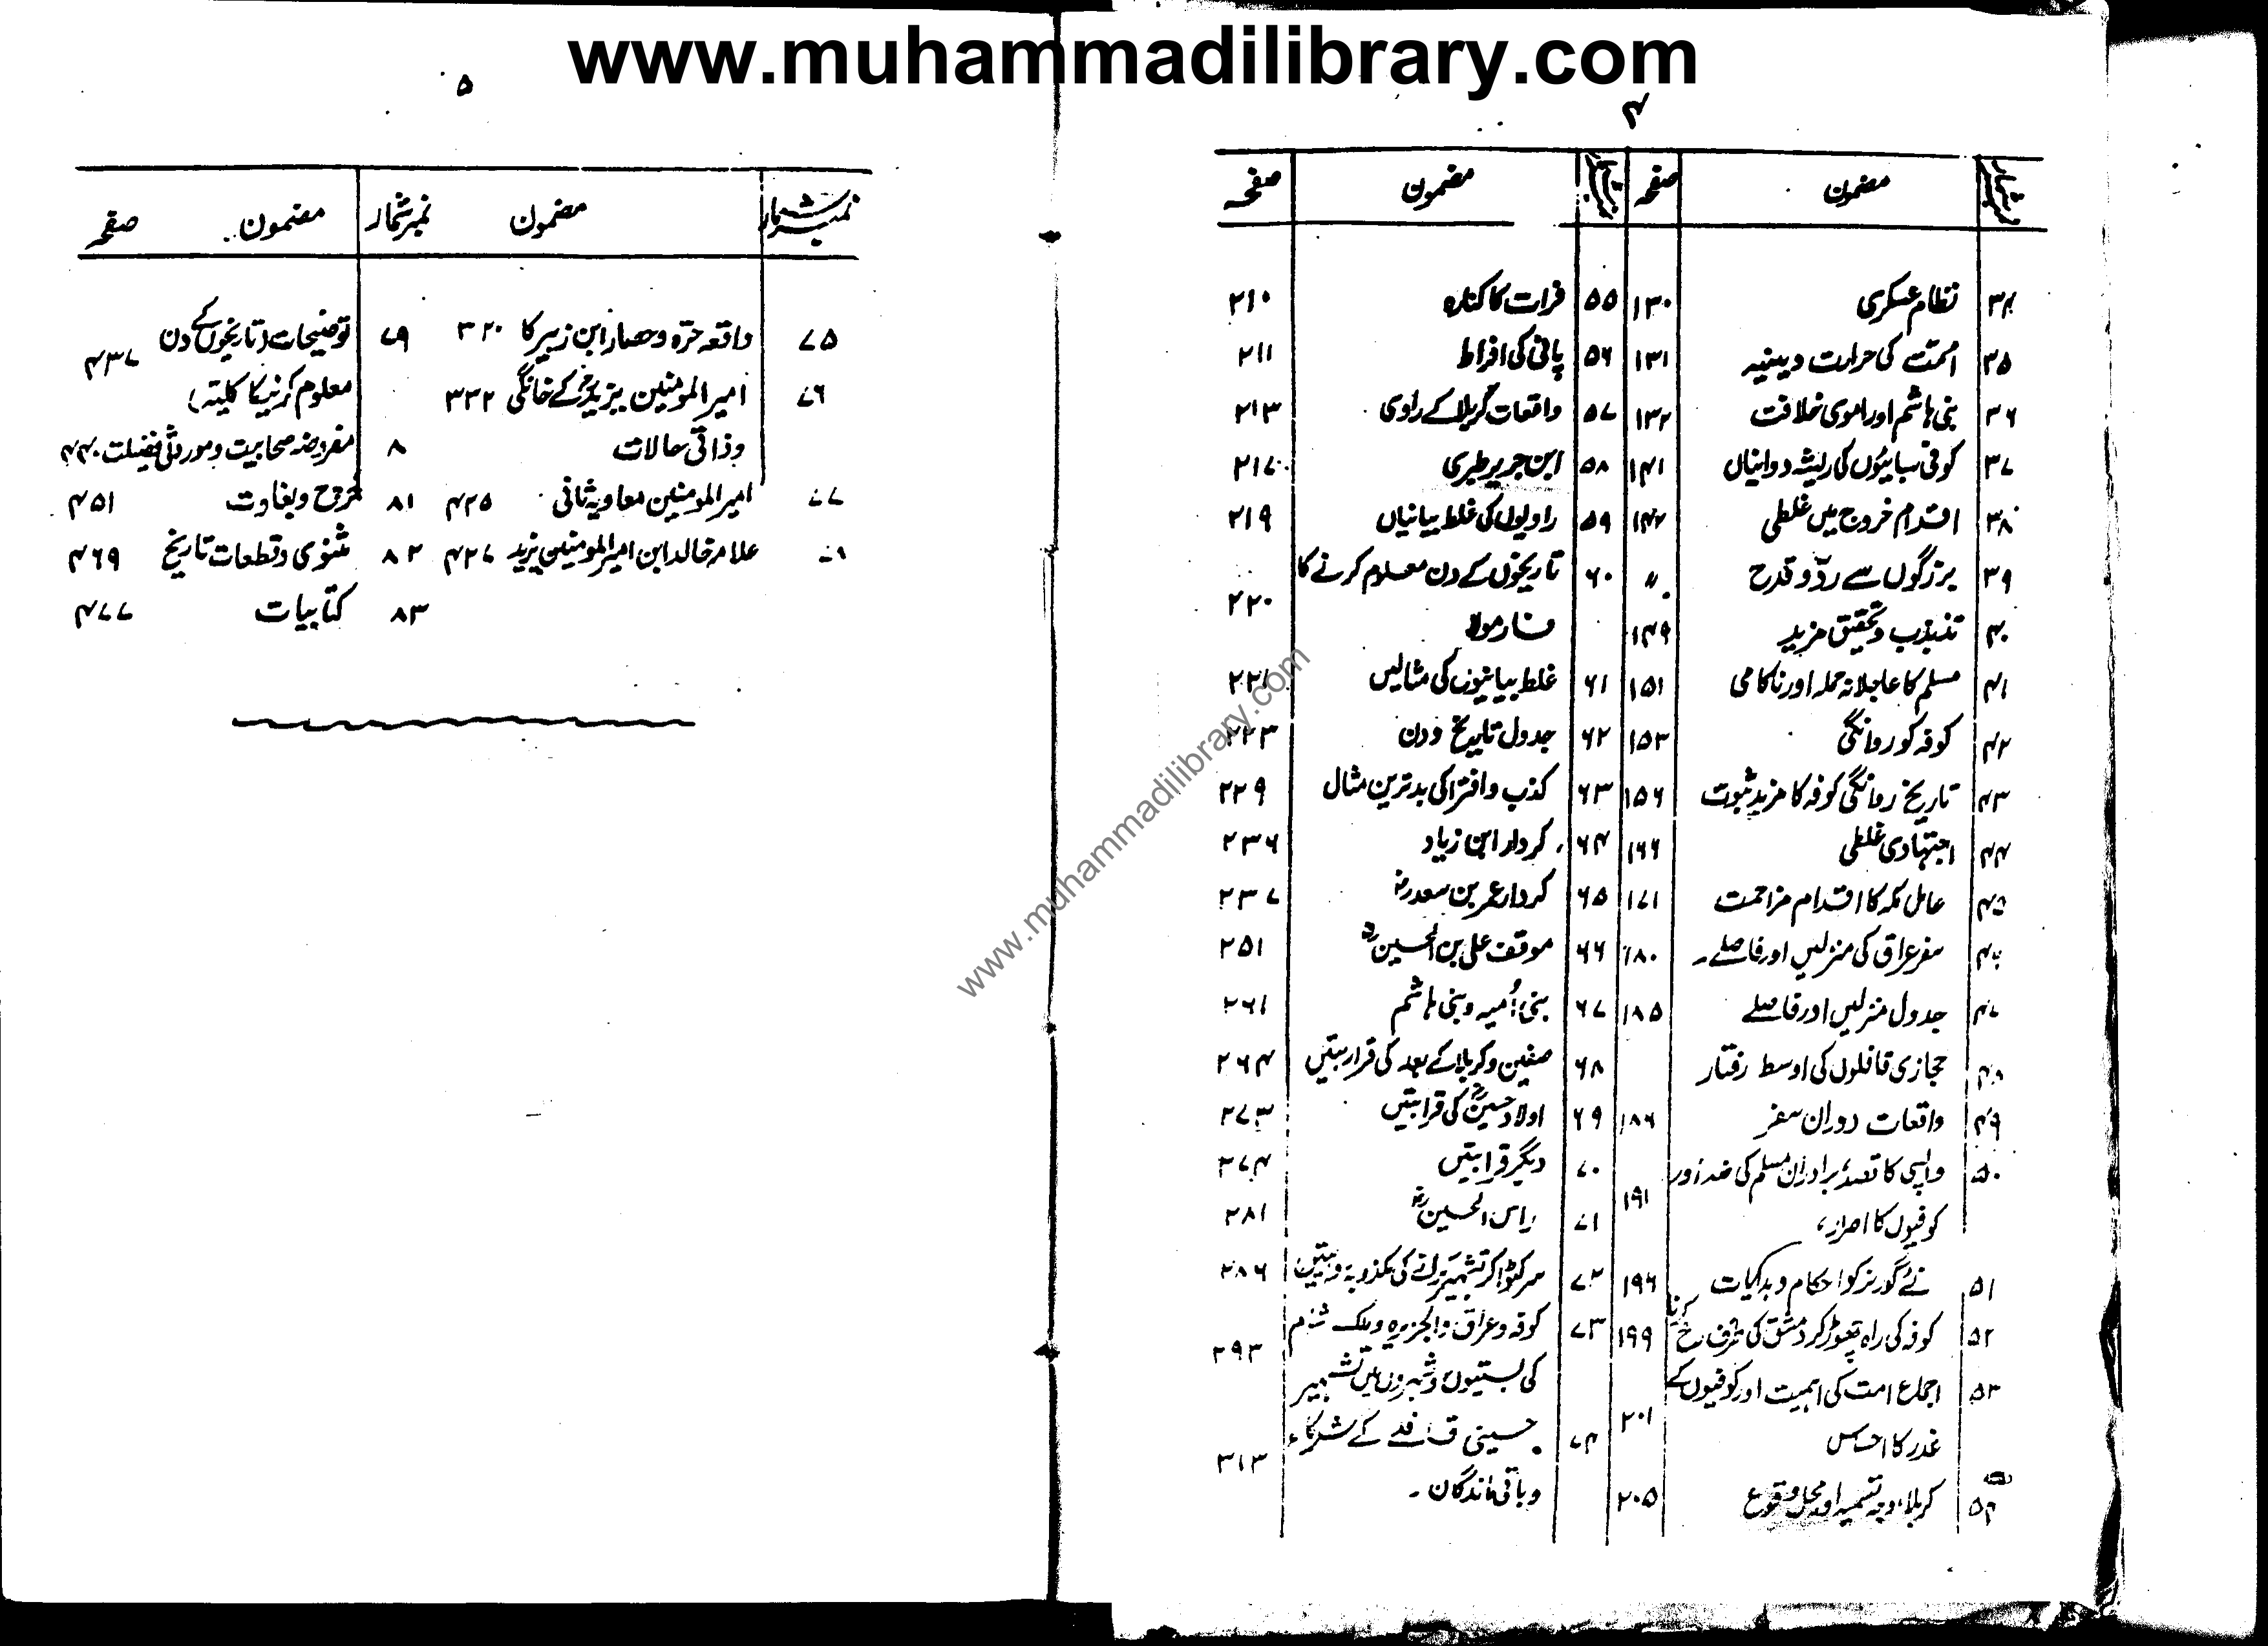 www.muhammadilibrary.com
۴
نمبر شمار مضمون صفحہ
۳۴ نظام عسکری ۱۳۰
۳۵ امت کی حرارت دینیہ ۱۳۱
۳۶ بنی ہاشم اور اموی خلافت ۱۳۲
۳۷ کوفی سبائیوں کی ریشہ دوانیاں ۱۴۱
۳۸ اقدام خروج میں غلطی ۱۴۲
۳۹ بزرگوں سے ردّ و قدح ״
۴۰ تذبذب و تحقیق مزید ۱۴۹
۴۱ مسلم کا عاجلانہ حملہ اور ناکامی ۱۵۱
۴۲ کوفہ کو روانگی ۱۵۳
۴۳ تاریخ روانگی کوفہ کا مزید ثبوت ۱۵۶
۴۴ اجتہادی غلطی ۱۶۶
۴۵ عامل مکہ کا اقدام مزاحمت ۱۷۱
۴۶ سفر عراق کی منزلیں اور فاصلے۔ ۱۸۰
۴۷ جدول منزلیں اور فاصلے ۱۸۵
۴۸ حجازی قافلوں کی اوسط رفتار
۴۹ واقعات دوران سفر ۱۸۶
۵۰ واپسی کا قصد، برادران مسلم کی ضد اور
کوفیوں کا اصرار، ۱۹۱
۵۱ نئے گورنر کو احکام و ہدایات ۱۹۶
۵۲ کوفہ کی راہ چھوڑ کر دمشق کی طرف رخ کرنا ۱۹۹
۵۳ اجماع امت کی اہمیت اور کوفیوں کے
غدر کا احساس ۲۰۱
۵۴ کربلا، وجہ تسمیہ اور محل وقوع ۲۰۵
نمبر شمار مضمون صفحہ
۵۵ فرات کا کنارہ ۲۱۰
۵۶ پانی کی افراط ۲۱۱
۵۷ واقعات کربلا کے راوی ۲۱۳
۵۸ ابن جریر طبری ۲۱۷
۵۹ راویوں کی غلط بیانیاں ۲۱۹
۶۰ تاریخوں کے دن معلوم کرنے کا
فارمولا ۲۲۰
۶۱ غلط بیانیوں کی مثالیں ۲۲۱
۶۲ جدول تاریخ و دن ۲۲۳
۶۳ کذب و افترا کی بدترین مثال ۲۲۹
۶۴ کردار ابن زیاد ۲۳۶
۶۵ کردار عمر بن سعدؓ ۲۳۷
۶۶ موقف علی بن الحسینؓ ۲۵۱
۶۷ بنی اُمیہ و بنی ہاشم ۲۶۱
۶۸ صفین و کربلا کے بعد کی قرابتیں ۲۶۴
۶۹ اولاد حسینؓ کی قرابتیں ۲۷۳
۷۰ دیگر قرابتیں ۲۷۴
۷۱ راس الحسینؓ ۲۸۱
۷۲ سر کٹوا کر تشہیر کرانے کی مکذوبہ روایتیں ۲۸۶
۷۳ کوفہ و عراق و الجزیرہ و ملک شام
کی بستیوں و شہروں میں تشہیر ۲۹۳
۷۴ حسینی قافلے کے شرکاء
و باقی ماندگان۔ ۳۱۳
۵
نمبر شمار مضمون
۷۵ واقعہ حرّہ و حصار ابن زبیر کا ۳۲۰
۷۶ امیر المومنین یزیدؒ کے خانگی ۳۳۲
و ذاتی حالات
۷۷ امیر المومنین معاویہ ثانی ۴۲۵
علامہ خالد ابن امیر المومنین یزید ۴۲۷
نمبر شمار مضمون صفحہ
۷۹ توضیحات (تاریخوں کے دن
معلوم کرنیکا کلیتہ) ۴۳۷
۸ مفروضہ صحابیت و موروثی فضیلت ۴۴۰
۸۱ خروج و بغاوت ۴۵۱
۸۲ مثنوی و قطعات تاریخ ۴۶۹
۸۳ کتابیات ۴۷۷
www.muhammadilibrary.com